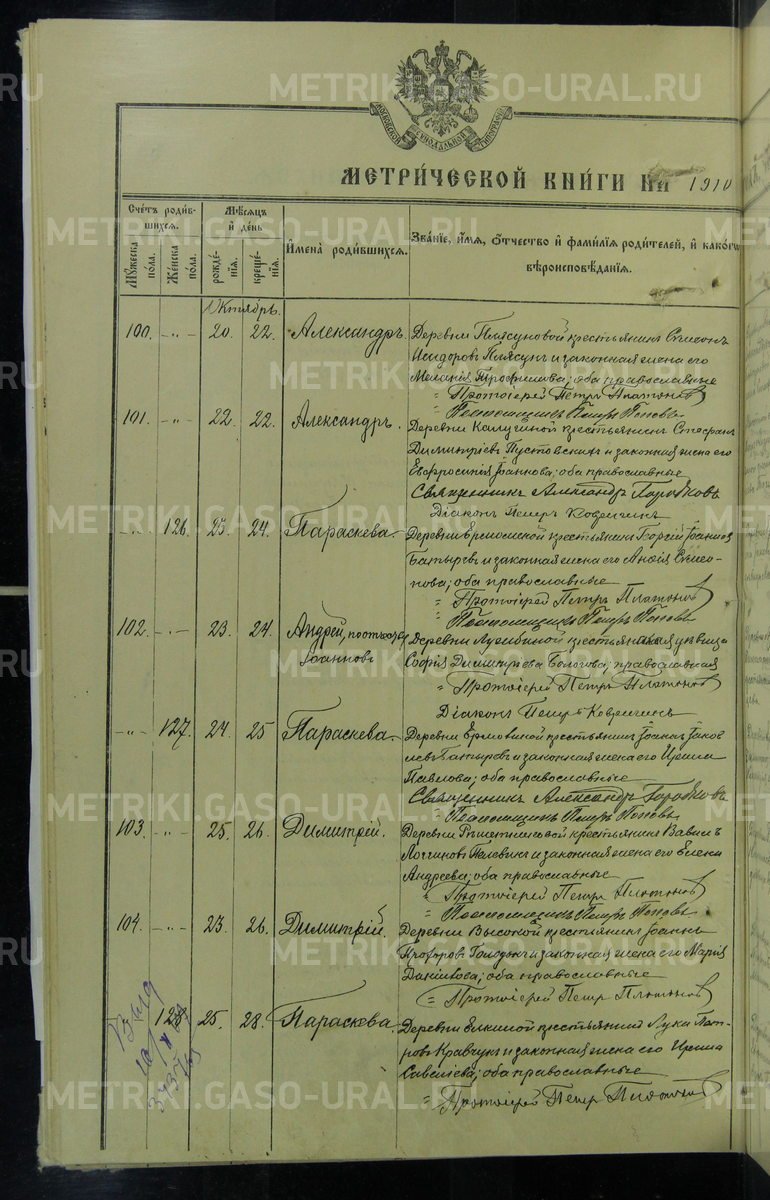 МОСКОВСКОЙ СѴНОДАЛЬНОЙ ТИПОГРАФІИ
МЕТРИ́ЧЕСКОЙ КНИ́ГИ НА 1910
Сче́тъ роди́в-
шихся.
Мѣ́сяцъ
и҆ де́нь
И҆мена̀ роди́вшихся.
Зва́нїе, и҆́мя, ѻ҆́тчество и҆ фами́лїя роди́телей, и҆ како́гѡ
вѣроисповѣ́данїя.
Мꙋ́жеска
по́ла.
Же́нска
по́ла.
рожде́-
нїѧ.
креще́-
нїѧ.
Октябрь.
100. -"- 20. 22. Александръ. Деревни Плясуновой крестьянинъ Симеонъ
Исидоровъ Плясунъ и законная жена его
Мелания Трофимова; оба православные
Протоіерей Петръ Платоновъ
Псаломщикъ Петръ Поповъ
101. -"- 22. 22. Александръ. Деревни Калугиной крестьянинъ Стефанъ
Димитріевъ Пустовскихъ и законная жена его
Евфросинія Іоаннова; оба православные
Священникъ Александръ Горбковъ
Діаконъ Петръ
-"- 126. 23. 24. Параскева. Деревни крестьянинъ Георгій
Батыревъ и законная жена его Симео-
нова; оба православные
Протоіерей Петръ Платоновъ
Псаломщикъ Петръ Поповъ
102. -"- 23. 24. Андрей,
Іоанновъ
Деревни крестьянская девица
Софія Димитріева; православная
Протоіерей Петръ Платоновъ
Діаконъ Петръ
-"- 127. 24. 25 Параскева. Деревни крестьянинъ Іоаннъ Іаков-
левъ Батыревъ и законная жена его Ирина
Павлова; оба православные
Священникъ Александръ Горбковъ
Псаломщикъ Петръ Поповъ
103. -"- 25. 26. Димитрій. Деревни Решетниковой крестьянинъ Вавилъ
Логгиновъ Пелевинъ и законная жена его Елена
Андреева; оба православные
Протоіерей Петръ Платоновъ
Псаломщикъ Петръ Поповъ
104. -"- 23. 26. Димитрій. Деревни Высокой крестьянинъ Іоаннъ
и законная жена его Марія
Даніилова; оба православные
Протоіерей Петръ Платоновъ
128 25. 28. Параскева. Деревни Елкиной крестьянинъ Лука Пет-
ровъ Кравчукъ и законная жена его Ирина
Савеліева; оба православные
Протоіерей Петръ Платоновъ
METRIKI.GASO-URAL.RU